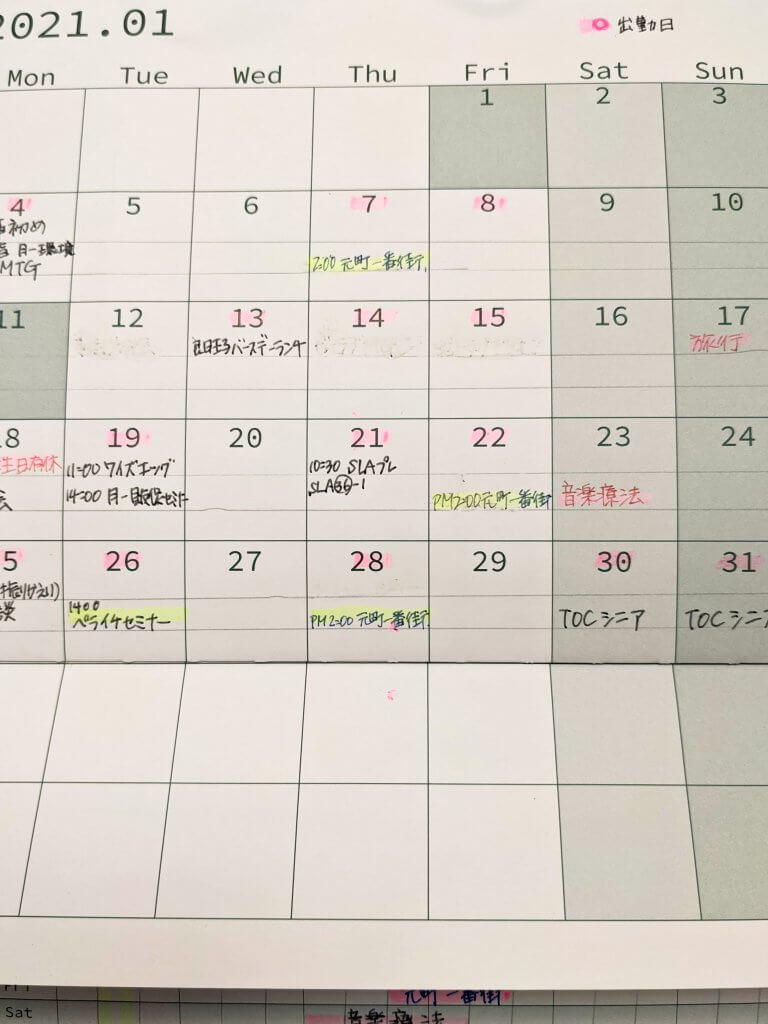 2021.01
出勤日
Mon Tue Wed Thu Fri Sat Sun
1 2 3
4 5 6 7 8 9 10
初め
月一環境
MTG
2:00 元町一番街
11 12 13 14 15 16 17
バースデーランチ
旅行
8 19 20 21 22 23 24
生日有休
会
11:00 ワイズホーング
14:00 月一販促セミナー
10:30 SLAプレ
SLA㊱-1
PM2:00元町一番街
音楽療法
5 26 27 28 29 30 31
14:00
ペライチセミナー
PM2:00 元町一番街
TOCシニア
TOCシニア
Fri
Sat
元町一番街
音楽療法